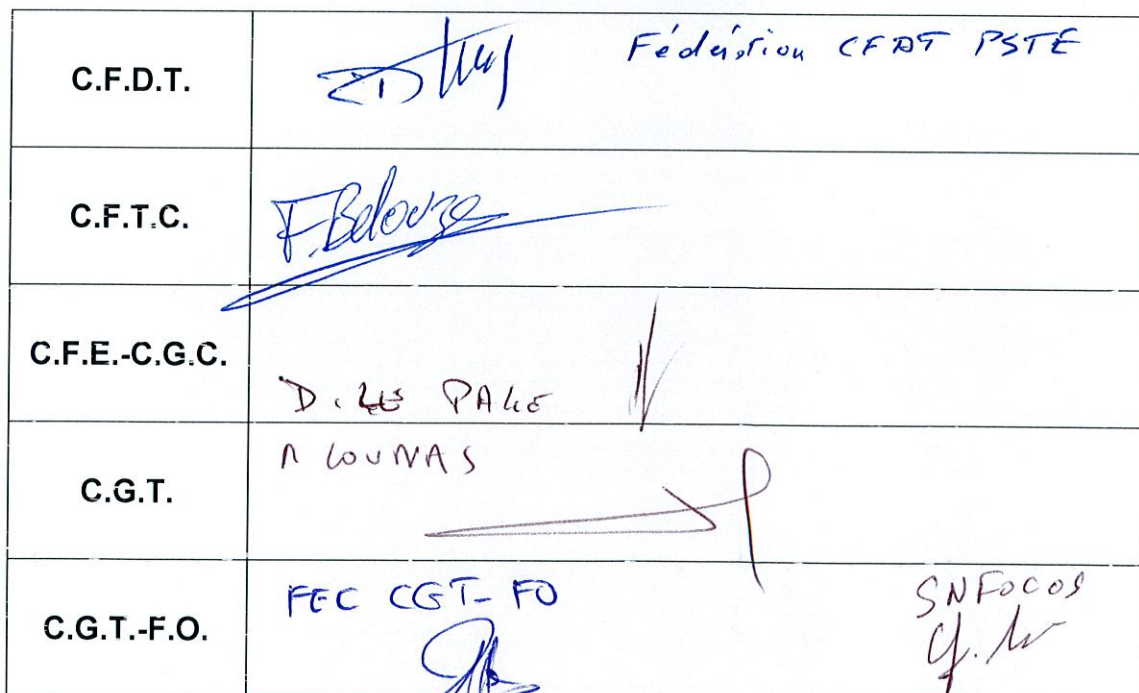 C.F.D.T.
Fédération CFDT PSTE
C.F.T.C.
F.Belouze
C.F.E.-C.G.C.
D. LE PAGE
C.G.T.
LOUNAS
C.G.T.-F.O.
FEC CGT-FO
SNFOCOS